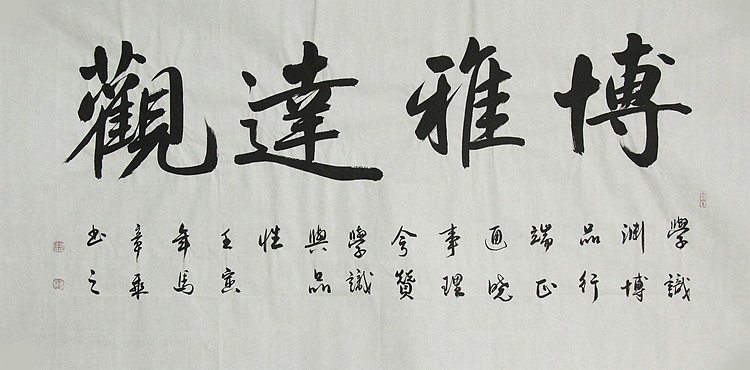 博雅達觀
學識
渊博
品行
端正
通曉
事理
贊
學識
與品
性
壬寅
年馬
章乘
书之